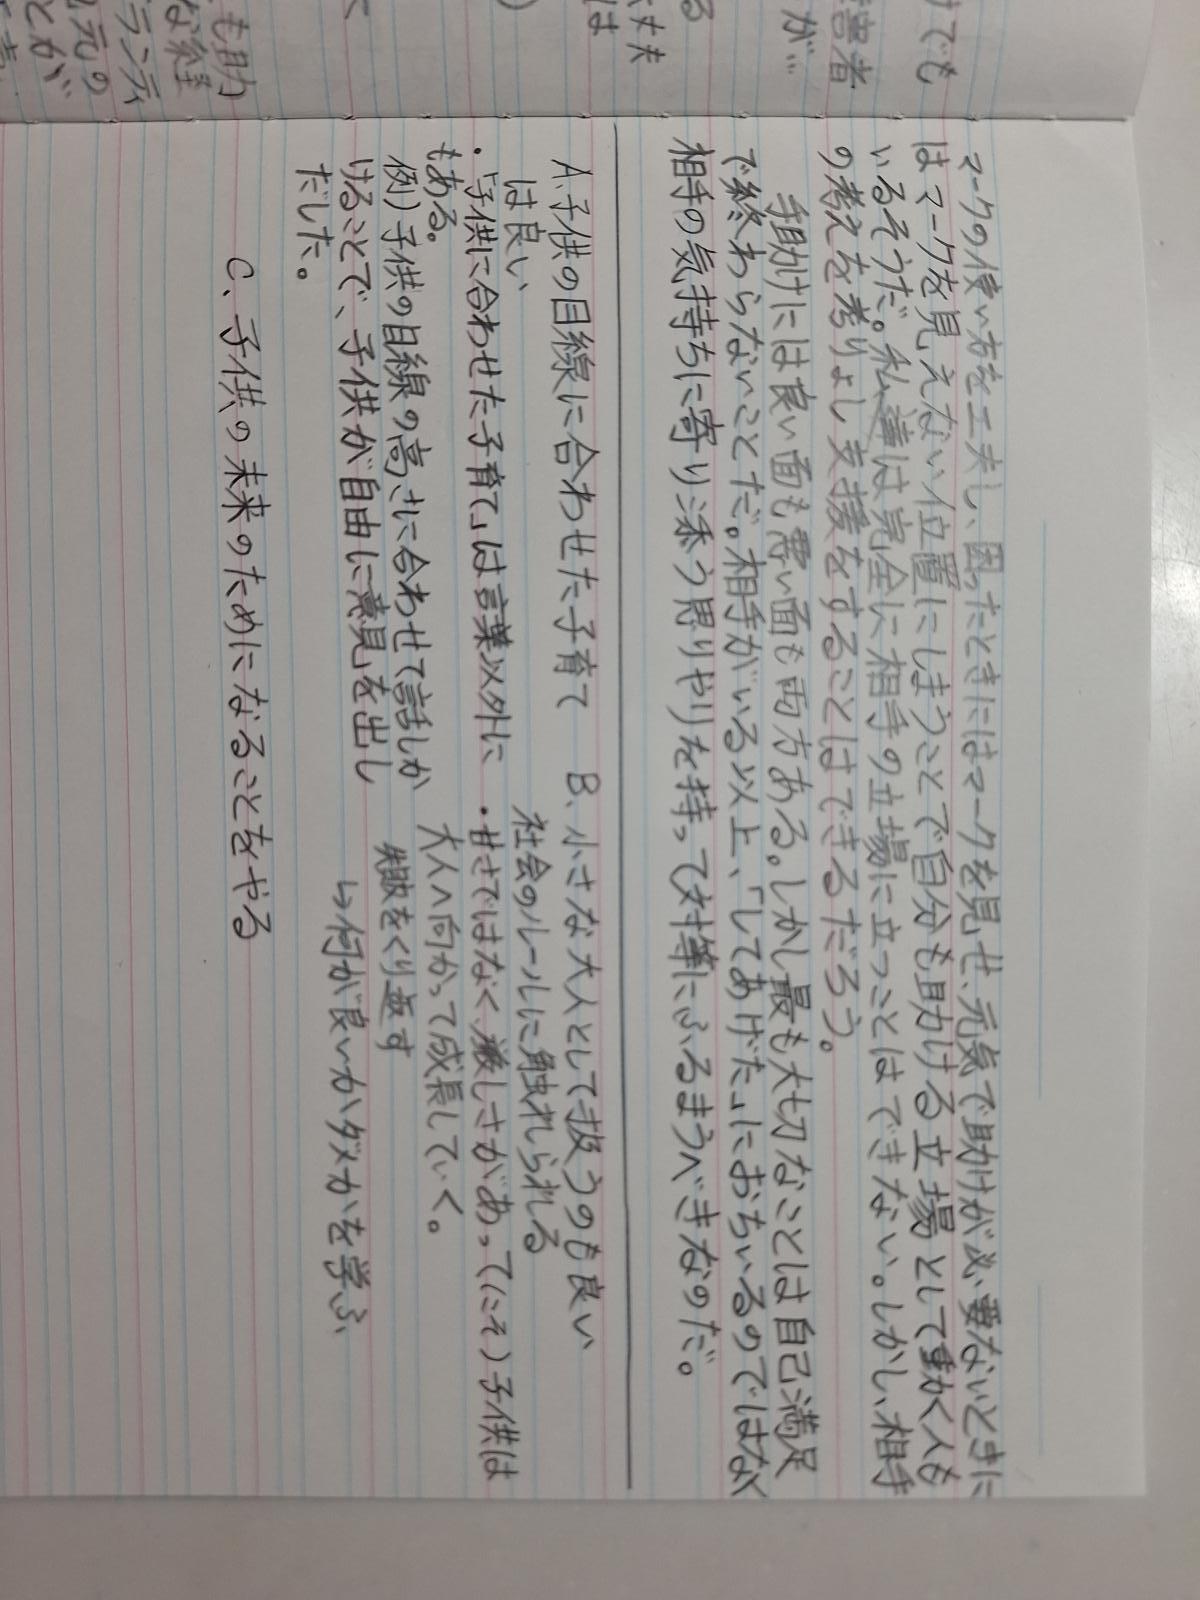 けでも
害者
が…
る
丈夫
は
も助
な経
ランティ
元の
とが
マークの使い方を工夫し、困ったときにはマークを見せ、元気で助けが必要ないときに
はマークを見えない位置にしまうことで自分も助ける立場として動く人も
いるそうだ。私達は完全に相手の立場に立つことはできない。しかし、相手
の考えを考りょし支援をすることはできるだろう。
手助けには良い面も悪い面も両方ある。しかし最も大切なことは自己満足
で終わらないことだ。相手がいる以上、「してあげた」におちいるのではなく
相手の気持ちに寄り添う思りやりを持って対等にふるまうべきなのだ。
A.子供の目線に合わせた子育て
は良い
・「子供に合わせた子育て」は言葉以外に
もある。
例)子供の目線の高さに合わせて話しか
けることで、子供が自由に意見を出し
だした。
B、小さな大人として扱うのも良い
社会のルールに触れしられる
・甘さではなく厳しさがあって(こそ)子供は
大人へ向かって成長していく。
失敗をくり返す
↳何が良いかダメかを学ぶ
C、子供の未来のためになることをやる